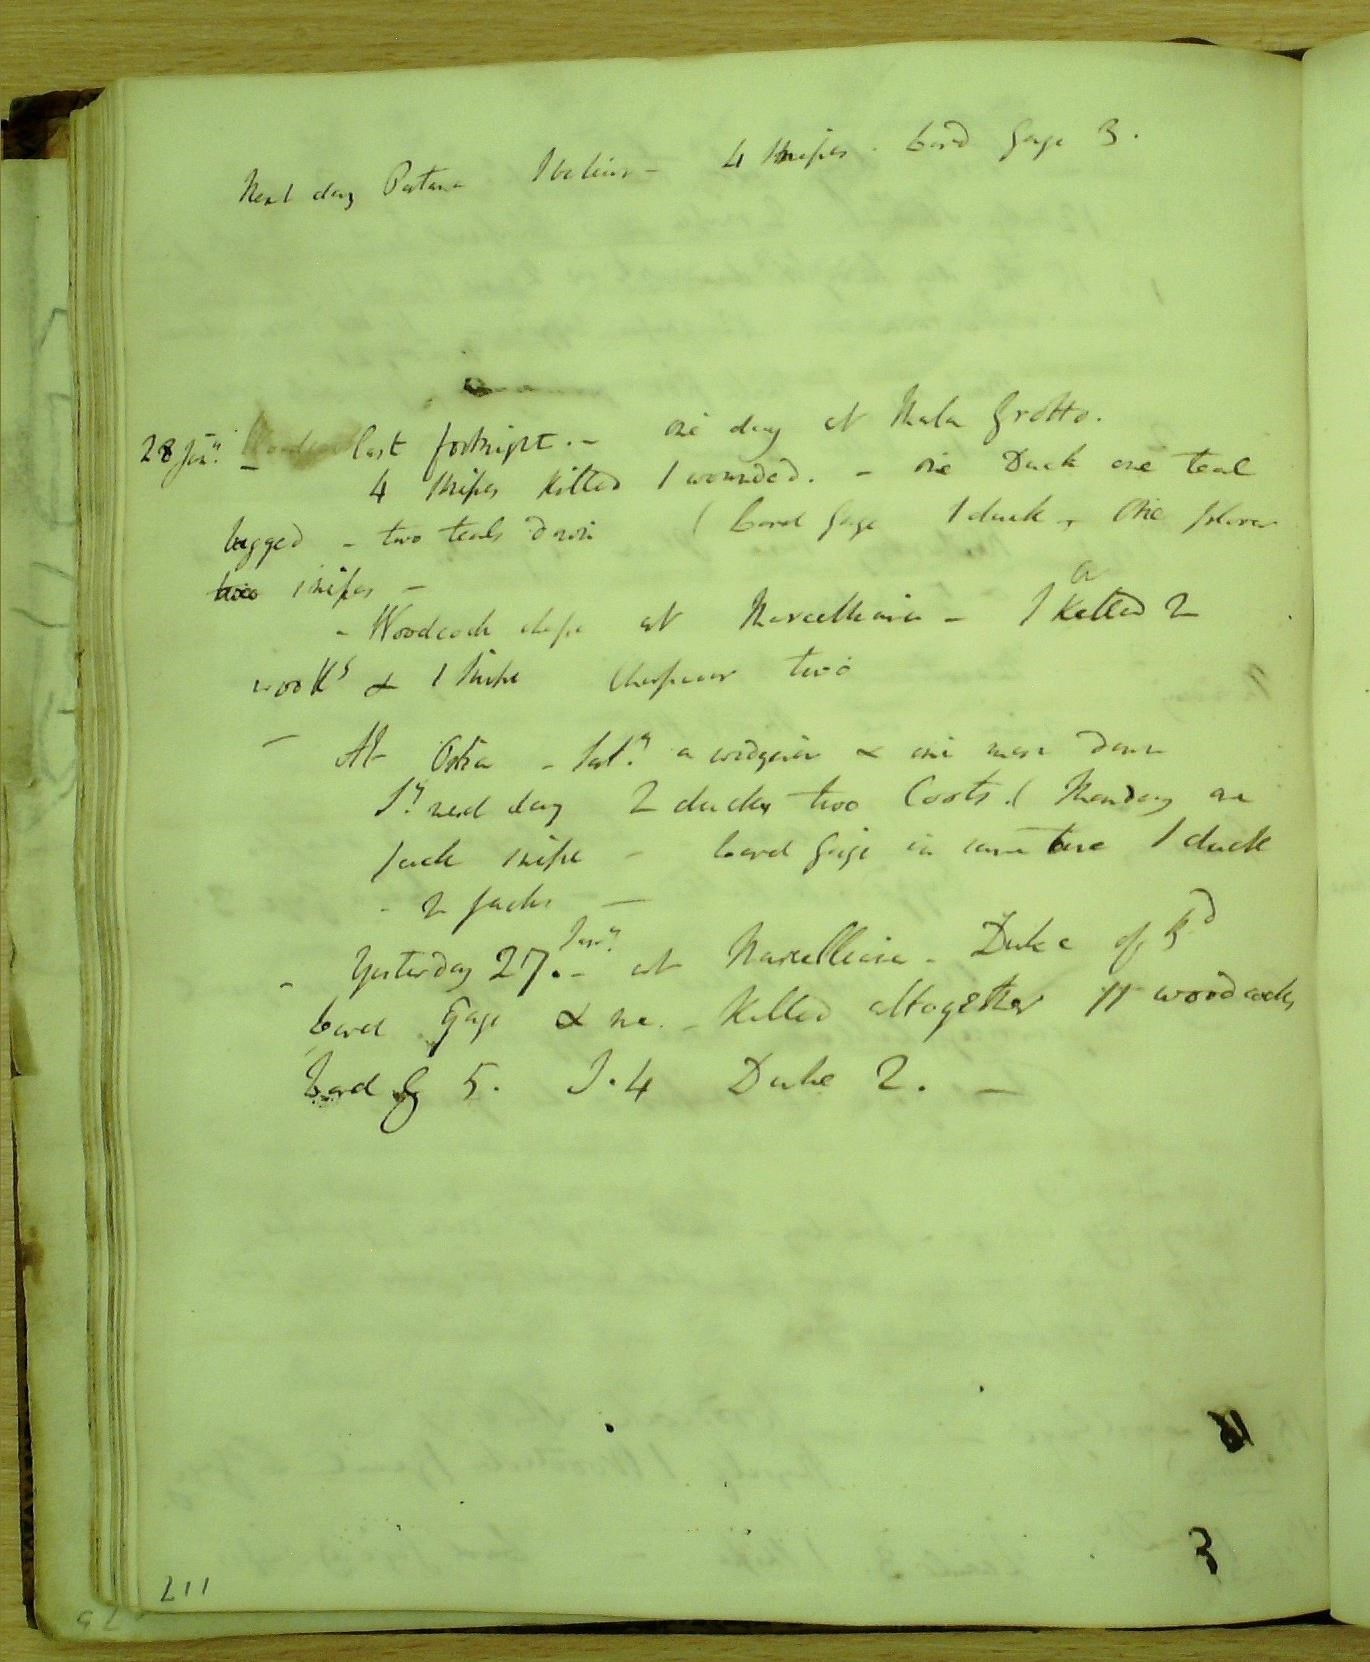 Next day 4 snipes. Lord Gage 3.
28 Jany. last fortnight. - one day at Mala Grotto.
4 snipes killed 1 wounded. - one Duck one teal
bagged - two teals down ( Lord Gage 1 duck, one plover
two snipes -
- Woodcock at - I killed 2
& 1 snipe two
- At Ostia - Saty. a widgeon & one more down
Sy. next day 2 ducks two Coots. ( Monday one
Jack snipe - Lord Gage in same time 1 duck
- 2 Jacks -
- Yesterday 27. Jany. - at Marcelliana - Duke of Bd
Lord Gage & me. - Killed altogether 11 woodcocks
Lord G 5. I. 4 Duke 2. -
3
117